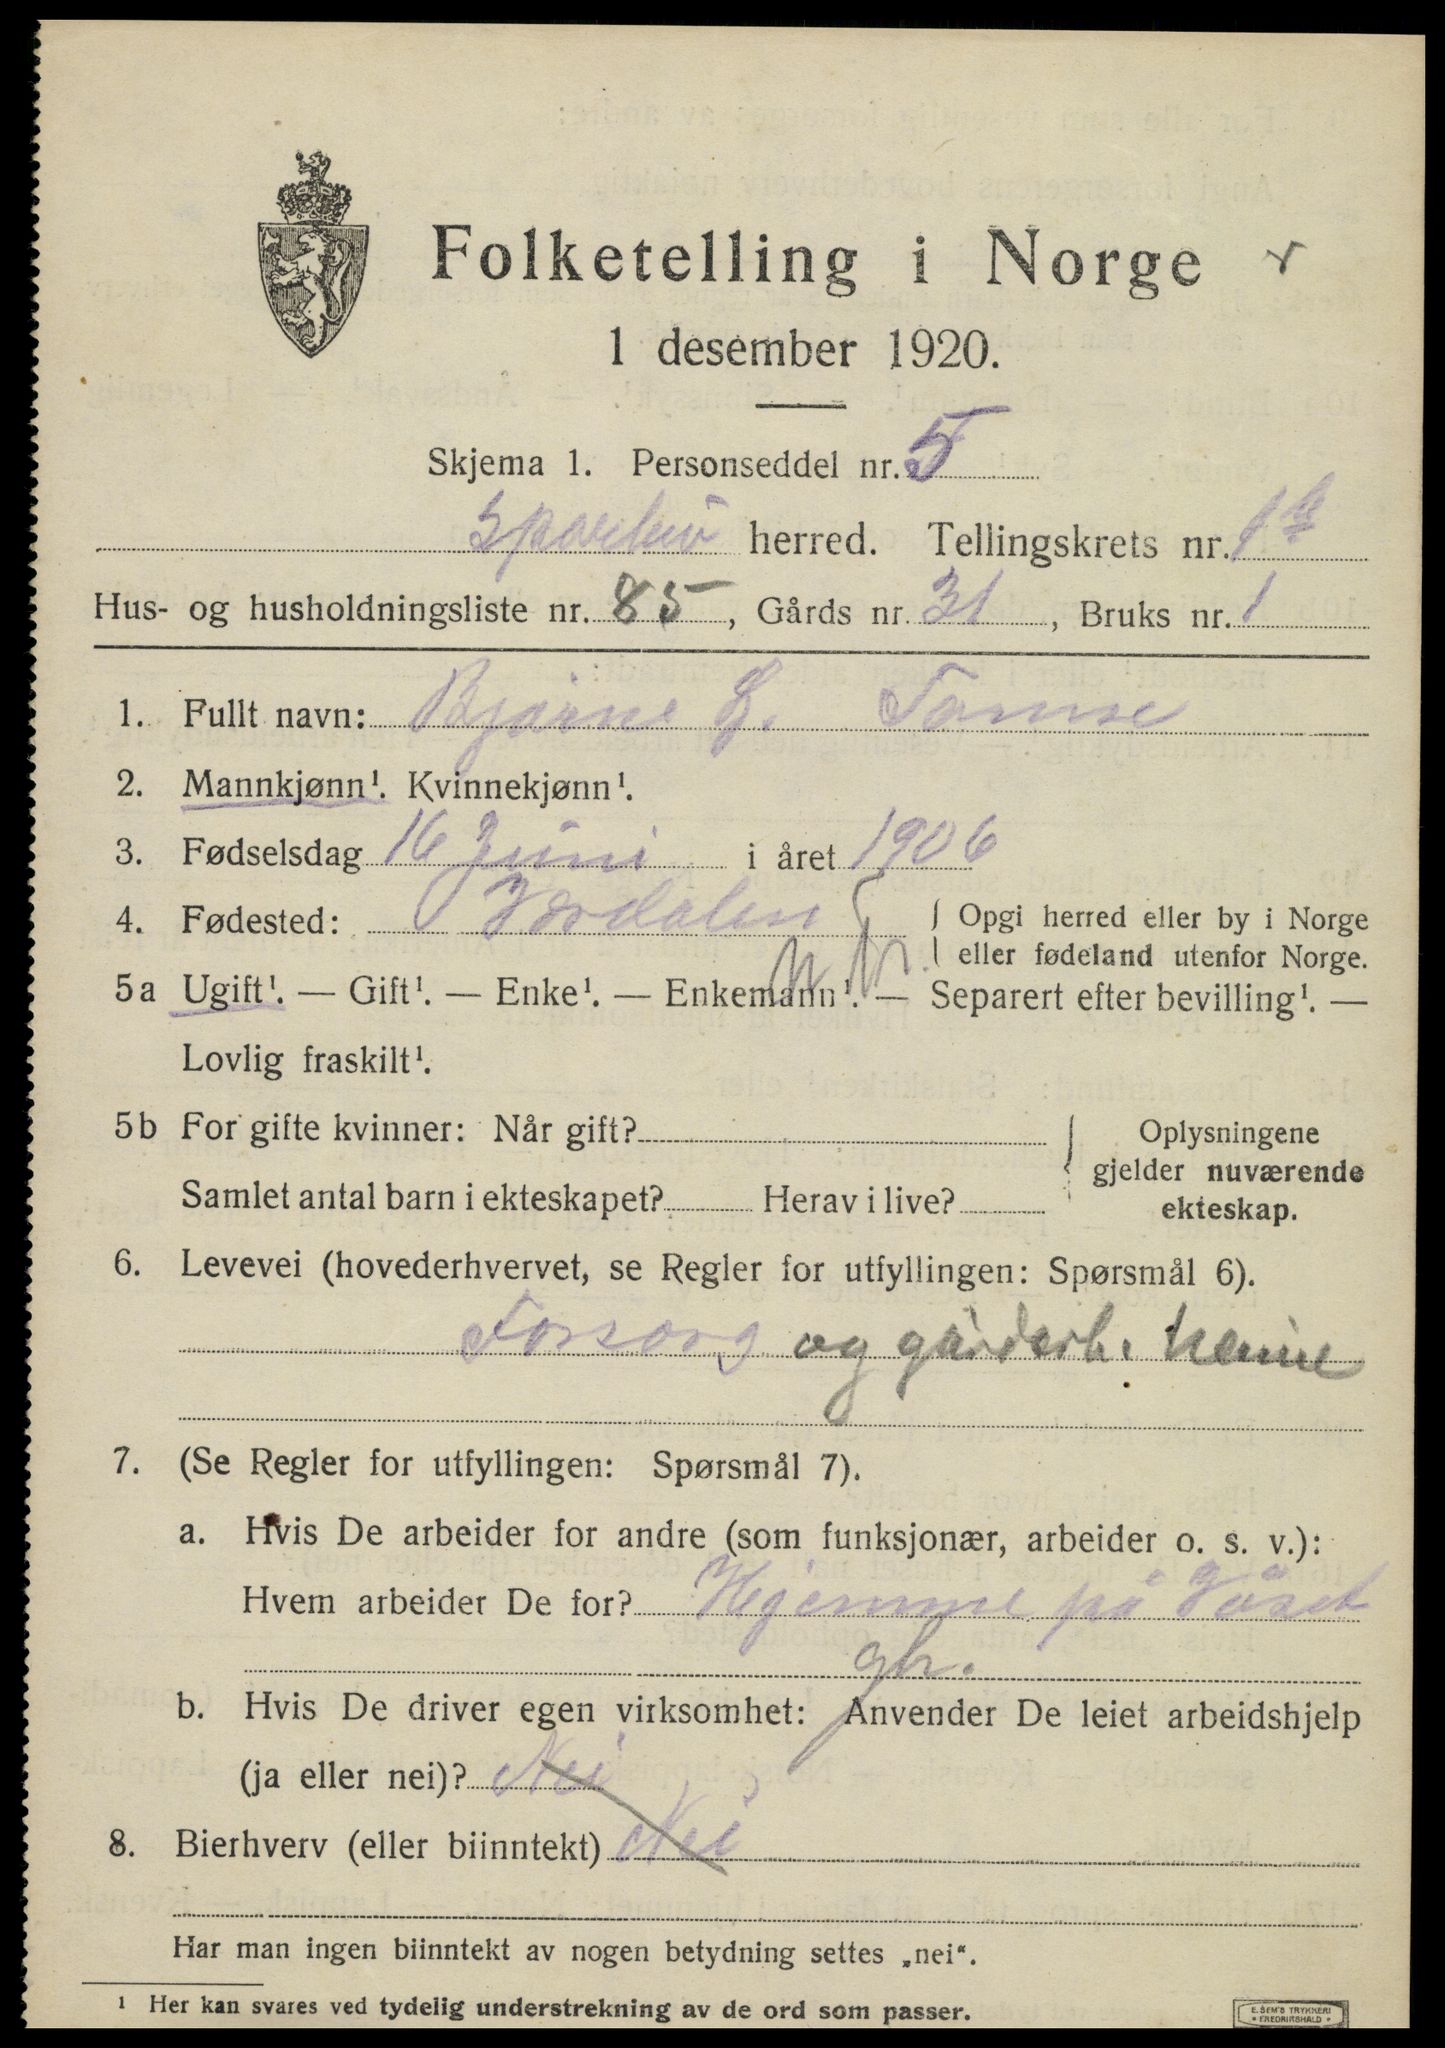 Folketelling i Norge
1 desember 1920.
Skjema 1. Personseddel nr. 5
Sparbu herred. Tellingskrets nr. 1
Hus- og husholdningsliste nr. 85, Gårds nr. 31, Bruks nr. 1
1. Fullt navn: Bjarne
2. Mannkjønn¹. Kvinnekjønn¹.
3. Fødselsdag 16 Juni i året 1906
4. Fødested: Verdalen { Opgi herred eller by i Norge
eller fødeland utenfor Norge.
5a Ugift¹. — Gift¹. — Enke¹. — Enkemann¹. — Separert efter bevilling¹. —
Lovlig fraskilt¹.
5b For gifte kvinner: Når gift? Oplysningene
gjelder nuværende
Samlet antal barn i ekteskapet? Herav i live? ekteskap.
6. Levevei (hovederhvervet, se Regler for utfyllingen: Spørsmål 6).
Forsørg og gårdsarb. heime
7. (Se Regler for utfyllingen: Spørsmål 7).
a. Hvis De arbeider for andre (som funksjonær, arbeider o. s. v.):
Hvem arbeider De for? Hjemme på
b. Hvis De driver egen virksomhet: Anvender De leiet arbeidshjelp
(ja eller nei)? Nei
8. Bierhverv (eller biinntekt) Nei
Har man ingen biinntekt av nogen betydning settes „nei“.
¹ Her kan svares ved tydelig understrekning av de ord som passer.
E. SEM'S TRYKKERI
• FREDRIKSHALD •